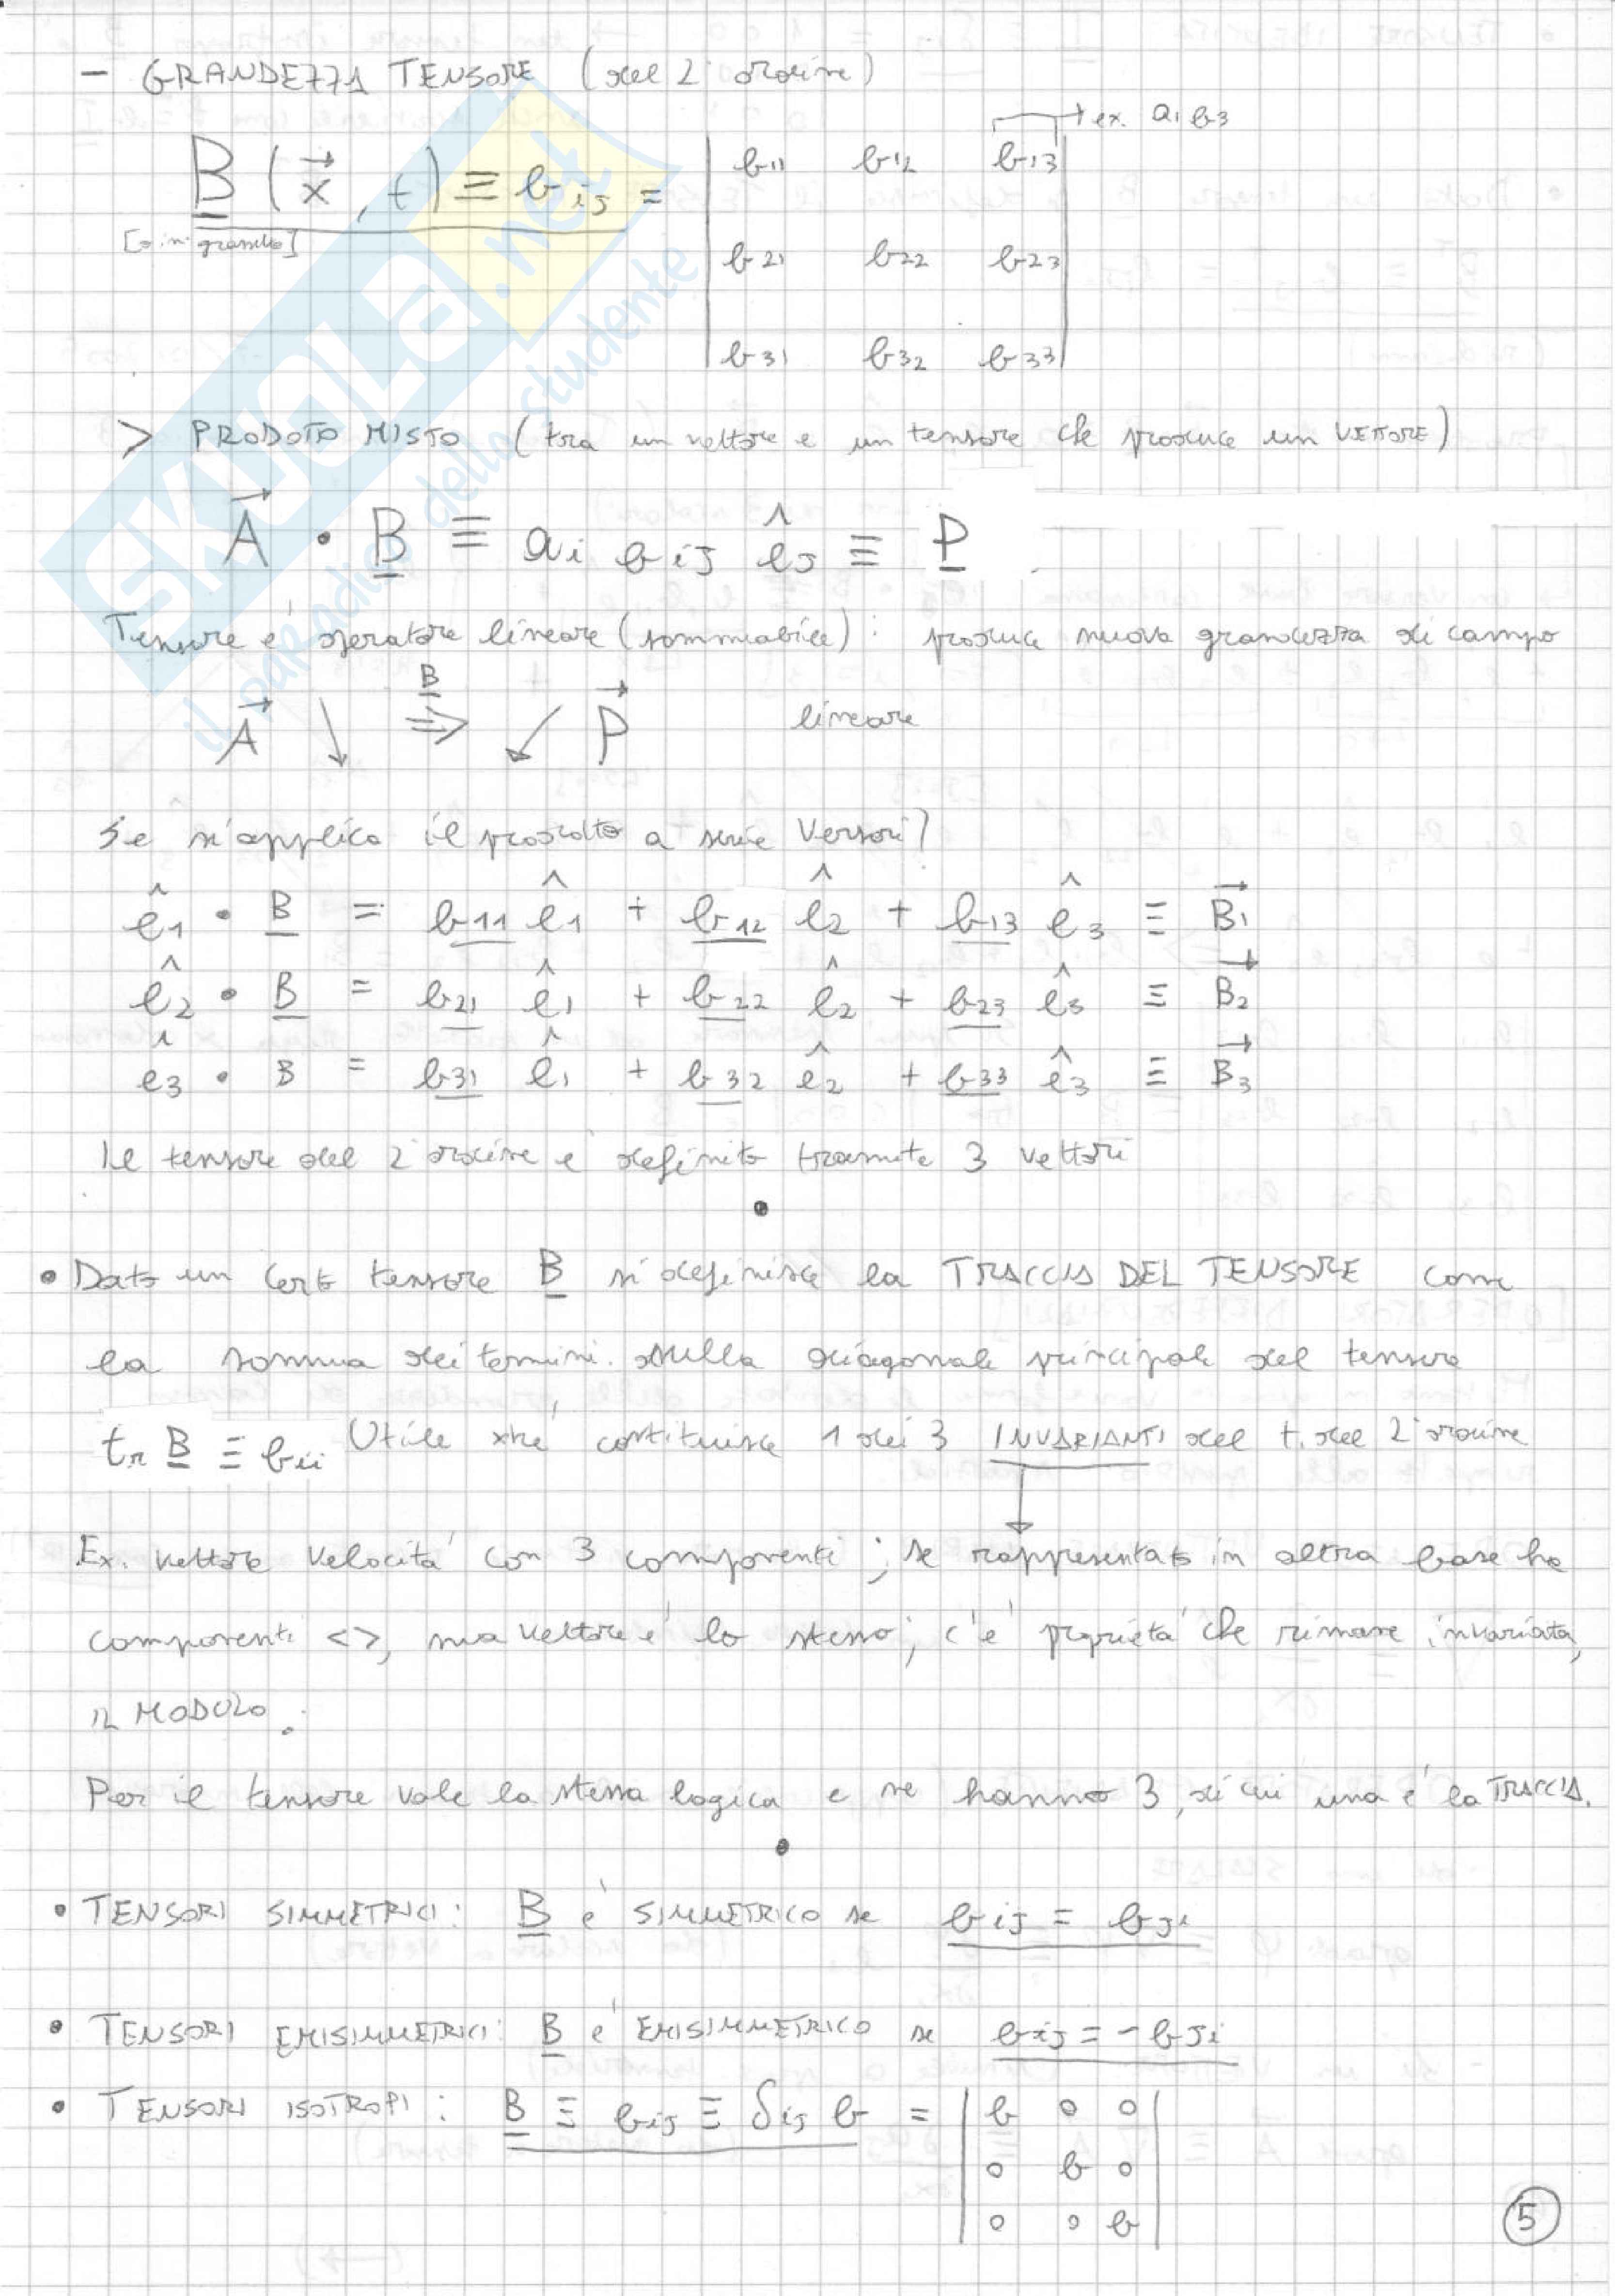 - GRANDEZZA TENSORE (del 2° ordine)
ex. a1 b3
B (x⃗, t) ≡ bij = | b11 b12 b13 |
[o in grassetto]
| b21 b22 b23 |
| b31 b32 b33 |
> PRODOTO MISTO (tra un vettore e un tensore che produce un VETTORE)
A⃗ • B ≡ ai bij êj ≡ P
Tensore è operatore lineare (sommabile): produce nuova grandezza di campo
A⃗ ↘ B ⇒ ↙ P⃗ lineare
Se si applica il prodotto a serie Versori?
ê1 • B = b11 ê1 + b12 ê2 + b13 ê3 ≡ B⃗1
ê2 • B = b21 ê1 + b22 ê2 + b23 ê3 ≡ B⃗2
ê3 • B = b31 ê1 + b32 ê2 + b33 ê3 ≡ B⃗3
Il tensore del 2° ordine è definito tramite 3 vettori
•
• Dato un certo tensore B si definisce la TRACCIA DEL TENSORE come
la somma dei termini sulla diagonale principale del tensore
tr B ≡ bii Utile xké costituisce 1 dei 3 INVARIANTI del t. del 2° ordine
Ex. vettore velocità con 3 componenti; se rappresentato in altra base ha
componenti <>, ma vettore è lo stesso; c'è proprietà che rimane invariata,
IL MODULO.
Per il tensore vale la stessa logica e se hanno 3, di cui una è la TRACCIA.
•
• TENSORI SIMMETRICI: B è SIMMETRICO se bij = bji
• TENSORI EMISIMMETRICI: B è EMISIMMETRICO se bij = - bji
• TENSORI ISOTROPI: B ≡ bij ≡ δij b = | b 0 0 |
| 0 b 0 |
| 0 0 b |
5
SKUOLA.net
il paradiso dello studente